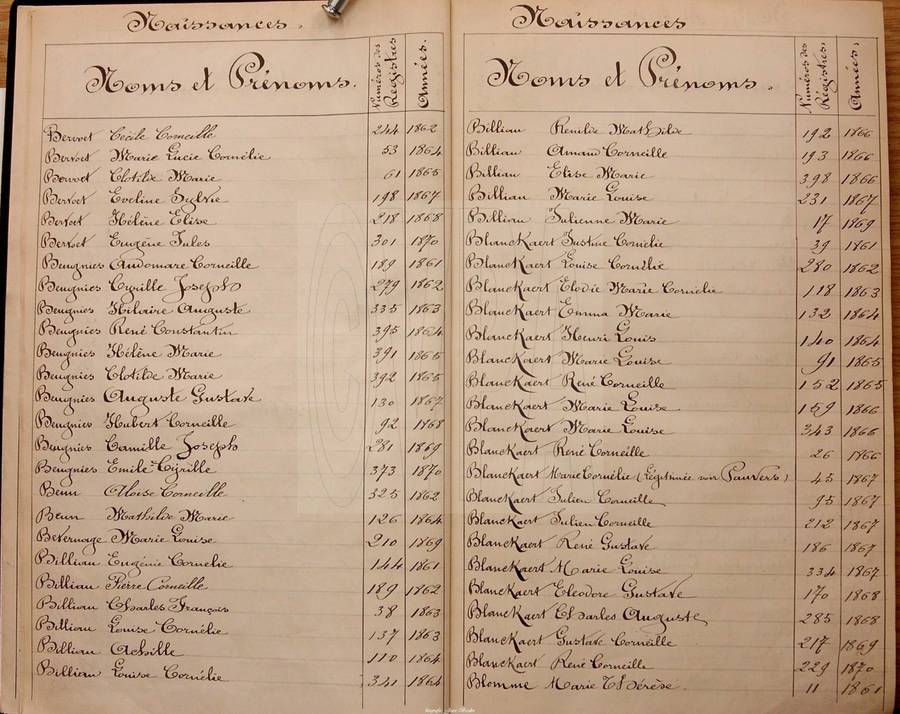 Naissances.
Noms et Prénoms. Numéros des Registres. Années.
Bervoet Cécile Corneille 244 1862
Bervoet Marie Lucie Cornélie 53 1864
Bervoet Clotilde Marie 61 1865
Bervoet Eveline Sylvie 198 1867
Bervoet Hélène Elise 218 1868
Bervoet Eugène Jules 301 1870
Beugnies Audomare Corneille 189 1861
Beugnies Cyrille Joseph 279 1862
Beugnies Hilaire Auguste 335 1863
Beugnies René Constantin 395 1864
Beugnies Hélène Marie 391 1865
Beugnies Clotilde Marie 392 1865
Beugnies Auguste Gustave 130 1867
Beugnies Hubert Corneille 92 1868
Beugnies Camille Joseph 281 1869
Beugnies Emile-Cyrille 373 1870
Beun Aloise Corneille 325 1862
Beun Mathilde Marie 126 1864
Bevernage Marie Louise 210 1869
Billiau Eugénie Cornélie 144 1861
Billiau Pierre Corneille 189 1862
Billiau Charles François 38 1863
Billiau Louise Cornélie 137 1863
Billiau Achille 110 1864
Billiau Louise Cornélie 341 1864
Naissances
Noms et Prénoms. Numéros des Régistres. Années.
Billiau Remilde Mathilde 192 1866
Billiau Amand Corneille 193 1866
Billiau Elise Marie 398 1866
Billiau Marie Louise 231 1867
Billiau Julienne Marie 17 1869
Blanckaert Justine Cornélie 39 1861
Blanckaert Louise Cornélie 280 1862
Blanckaert Elodie Marie Cornélie 118 1863
Blanckaert Emma Marie 132 1864
Blanckaert Henri Louis 140 1864
Blanckaert Marie Louise 91 1865
Blanckaert René Corneille 152 1865
Blanckaert Marie Louise 159 1866
Blanckaert Marie Louise 343 1866
Blanckaert René Corneille 26 1866
Blanckaert Marie Cornélie (Légitimée voir Pauvers) 45 1867
Blanckaert Julien Corneille 95 1867
Blanckaert Julien Corneille 212 1867
Blanckaert René Gustave 186 1867
Blanckaert Marie Louise 334 1867
Blanckaert Eleodore Gustave 170 1868
Blanckaert Charles Auguste 285 1868
Blanckaert Gustave Corneille 217 1869
Blanckaert René Corneille 229 1870
Blomme Marie Thérèse. 11 1861